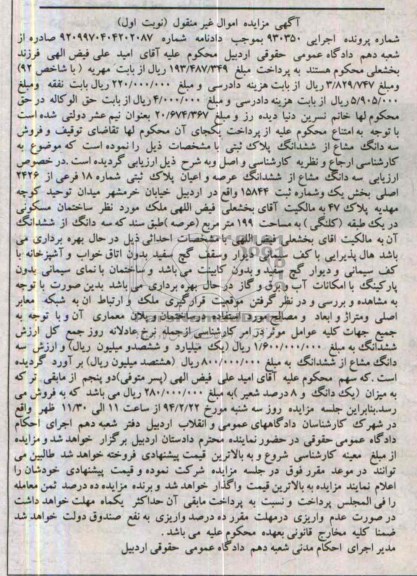 آگهی مزایده اموال غیر منقول (نوبت اول)
شماره پرونده اجرایی ۹۳۰۳۵۰ بموجب دادنامه شماره ۹۲۰۹۹۷۰۴۰۴۲۰۲۰۸۷ صادره از
شعبه دهم دادگاه عمومی حقوقی اردبیل محکوم علیه آقای امید علی فیض الهی فرزند
بخشعلی محکوم هستند به پرداخت مبلغ ۱۹۳/۴۸۷/۳۴۹ ریال از بابت مهریه ( با شاخص ۹۲)
ومبلغ ۳/۸۲۹/۷۴۷ ریال از بابت هزینه دادرسی و مبلغ ۲۲۰/۰۰۰/۰۰۰ ریال بابت نفقه ومبلغ
۵/۹۰۵/۰۰۰ ریال از بابت هزینه دادرسی و مبلغ ۴/۰۰۰/۰۰۰ ریال از بابت حق الوکاله در حق
محکوم لها خانم نسرین دنیا دیده رز و مبلغ ۲۰/۶۷۴/۳۶۷ بعنوان نیم عشر دولتی شده است
با توجه به امتناع محکوم علیه از پرداخت یکجای آن محکوم لها تقاضای توقیف و فروش
سه دانگ مشاع از ششدانگ پلاک ثبتی با مشخصات ذیل را نموده است که موضوع به
کارشناسی ارجاع و نظریه کارشناسی و اصل وبه شرح ذیل ارزیابی گردیده است .در خصوص
ارزیابی سه دانگ مشاع از ششدانگ عرصه و اعیان پلاک ثبتی شماره ۱۸ فرعی از ۲۴۲۶
اصلی بخش یک وشماره ثبت ۱۵۸۴۴ واقع در اردبیل خیابان خرمشهر میدان توحید کوچه
مهدیه پلاک ۴۷ به مالکیت آقای بخشعلی فیض اللهی ملک مورد نظر ساختمان مسکونی
در یک طبقه (کلنگی ) به مساحت ۱۹۹ متر مربع (عرصه )طبق سند که سه دانگ از ششدانگ
آن به مالکیت اقای بخشعلی فیض اللهی با مشخصات احداثی ذیل در حال بهره برداری می
باشد هال پذیرایی با کف سیمانی دیوار وسقف گچ سفید بدون اتاق خواب و آشپزخانه با
کف سیمانی و دیوار گچ سفید و بدون کابینت می باشد و ساختمان با نمای سیمانی بدون
پارکینگ با امکانات آب و برق و گاز در حال بهره برداری می باشد بدین صورت با توجه
به مشاهده و بررسی و در نظر گرفتن موقعیت قرارگیری ملک و ارتباط ان به شبکه معابر
اصلی ومتراژ و ابعاد و مصالح مورد استفاده در ساختمان وپلان معماری آن و با توجه به
جمیع جهات کلیه عوامل موثر در امر کارشناسی ازجمله نرخ عادلانه روز جمع کل ارزش
ششدانگ به مبلغ ۱/۶۰۰/۰۰۰/۰۰۰ ریال (یک میلیارد و ششصدو میلیون ریال) و ارزش سه
دانگ مشاع از ششدانگ به مبلغ ۸۰۰/۰۰۰/۰۰۰ ریال (هشتصد میلیون ریال) بر آورد گردیده
است .که سهم محکوم علیه آقای امید علی فیض الهی (پسر متوفی)دو پنجم از مابقی ترکه
به میزان (یک دانگ و ۸ درصد شعیر )به مبلغ ۲۸۰/۰۰۰/۰۰۰ ریال می باشد که به فروش می
رسد.بنابراین جلسه مزایده روز سه شنبه مورخ ۹۴/۲/۲۲ از ساعت ۱۱ الی ۱۱/۳۰ ظهر واقع
در شهرک کارشناسان دادگاههای عمومی و انقلاب اردبیل دفتر شعبه دهم اجرای احکام
دادگاه عمومی حقوقی در حضور نماینده محترم دادستان اردبیل برگزار خواهد شد و مزایده
از مبلغ معینه کارشناسی شروع و به بالاترین قیمت پیشنهادی فروخته خواهد شد طالبین می
توانند در موعد مقرر فوق در جلسه مزایده شرکت نموده و قیمت پیشنهادی خودشان را
اعلام نمایند مزایده به بالاترین قیمت واگذار خواهد شد و برنده مزایده ده درصد ثمن معامله
را فی المجلس پرداخت و نسبت به پرداخت مابقی آن حداکثر یکماه مهلت خواهد داشت
در صورت عدم واریزی درمهلت مقرر ده درصد واریزی به نفع صندوق دولت خواهد شد
ضمنا کلیه مخارج قانونی بعهده محکوم علیه می باشد .
مدیر اجرای احکام مدنی شعبه دهم دادگاه عمومی حقوقی اردبیل